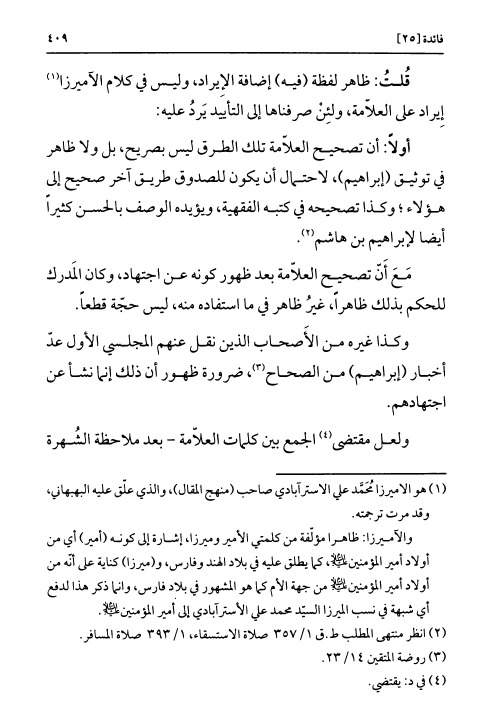 فائدة [٢٥]
٤٠٩
قُلتُ: ظاهر لفظة (فيه) إضافة الإيراد، وليس في كلام الآميرزا(١)
إيراد على العلاّمة، ولئِنْ صرفناها إلى التأييد يَردُ عليه:
أولاً: أن تصحيح العلاّمة تلك الطرق ليس بصريح، بل ولا ظاهر
في توثيق (إبراهيم)، لاحتمال أن يكون للصدوق طريق آخر صحيح إلى
هؤلاء؛ وكذا تصحيحه في كتبه الفقهية، ويؤيده الوصف بالحسن كثيراً
أيضا لإبراهيم بن هاشم(٢).
مَعَ أَنّ تصحيح العلاّمة بعد ظهور كونه عن اجتهاد، وكان المَدرك
للحكم بذلك ظاهراً، غيرُ ظاهر في ما استفاده منه، ليس حجّة قطعاً.
وكذا غيره من الأَصحاب الذين نقل عنهم المجلسي الأول عدّ
أخبار (إبراهيم) من الصحاح(٣)، ضرورة ظهور أن ذلك إنما نشأ عن
اجتهادهم.
ولعل مقتضى(٤) الجمع بين كلمات العلاّمة – بعد ملاحظة الشُهرة
(١) هو الاميرزا مُحَمَّد علي الاسترآبادي صاحب (منهج المقال)، والذي علّق عليه البهبهاني،
وقد مرت ترجمته.
والآميرزا: ظاهرا مؤلّفة من كلمتي الأمير وميرزا، إشارة إلى كونه (أمير) أي من
أولاد أمير المؤمنين، كما يطلق عليه في بلاد الهند وفارس، و(ميرزا) كناية على أنّه من
أولاد أمير المؤمنين من جهة الأم كما هو المشهور في بلاد فارس، وانما ذكر هذا لدفع
أي شبهة في نسب الميرزا السيّد محمد علي الأسترآبادي إلى أمير المؤمنين.
(٢) انظر منتهى المطلب ط.ق ١/ ٣٥٧ صلاة الاستسقاء، ١/ ٣٩٣ صلاة المسافر.
(٣) روضة المتقين ١٤/ ٢٣.
(٤) في د: يقتضي.